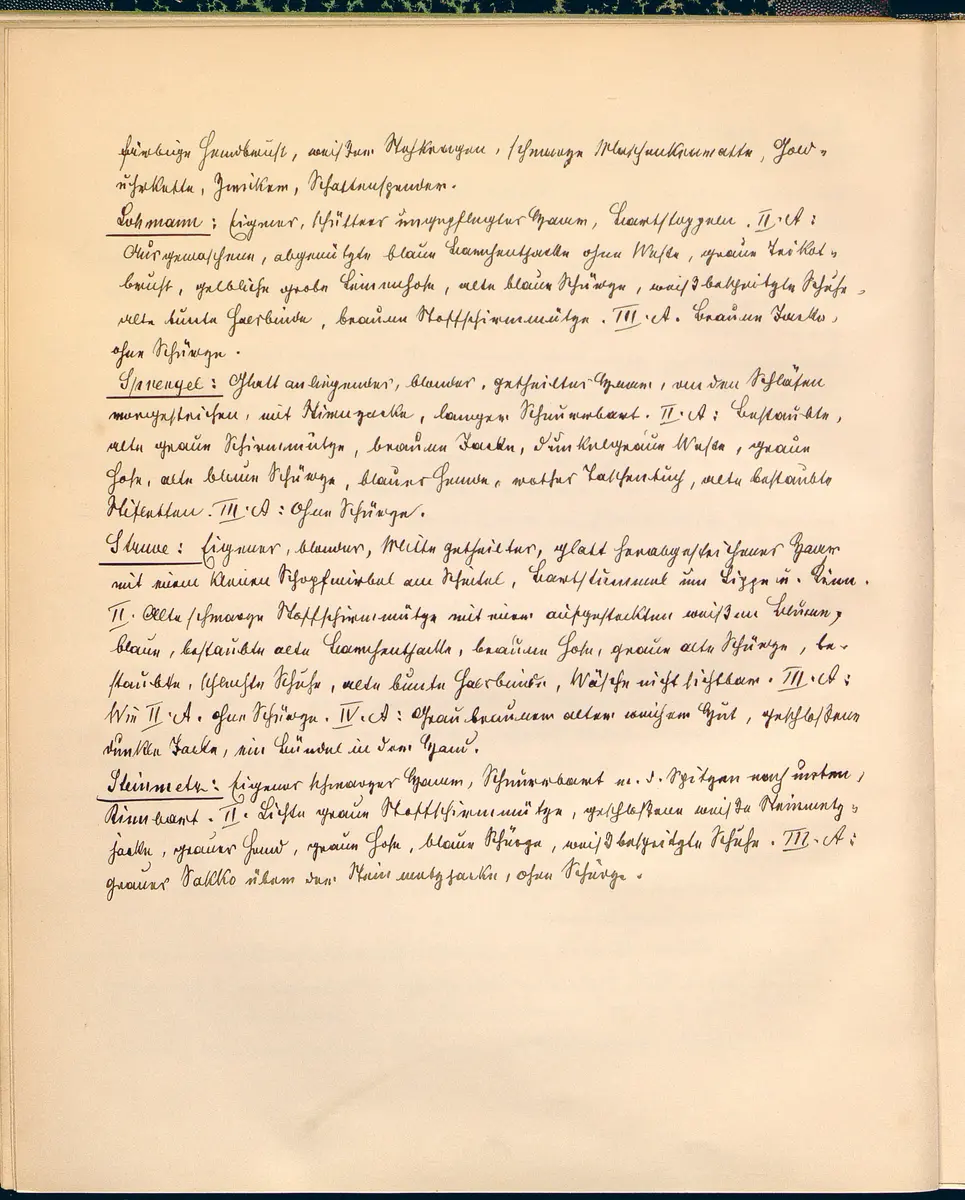 färbige Hemdbrust, weißer Stehkragen, schwarze Maschenkravatte, Gold-
uhrkette, Zwicker, Schattenspender.
Lohmann: Eigenes, schütteres ungepflegtes Haar, Bartstoppeln. II. A:
Ausgewaschene, abgenützte blaue Barchentjacke ohne Weste, graue Trikot-
brust, gelbliche grobe Leinenhose, alte blaue Schürze, weiß bespritzte Schuhe,
alte bunte Halsbinde, braune Stoffschirmmütze. III. A. Braune Jacke,
ohne Schürze.
Sprengel: Glatt anliegendes, blondes, getheiltes Haar, an den Schläfen
vorgestrichen, mit Stirnzacke, langer Schnurrbart. II. A: Bestaubte,
alte graue Schirmmütze, braune Jacke, dunkelgraue Weste, graue
Hose, alte blaue Schürze, blaues Hemd, rothes Taschentuch, alte bestaubte
Stifletten. III. A: Ohne Schürze.
Struve: Eigenes, blondes, Mitte getheiltes, glatt herabgestrichenes Haar
mit einem kleinen Schopfwirbel am Scheitel, Bartstummel um Lippe u. Kinn.
II. Alte schwarze Stoffschirmmütze mit einer aufgesteckten weißen Blume,
blaue, bestaubte alte Barchentjacke, braune Hose, graue alte Schürze, be-
staubte, schlechte Schuhe, alte bunte Halsbinde, Wäsche nicht sichtbar. III. A:
Wie II. A. ohne Schürze. IV. A: Graubrauner alter weicher Hut, geschloßene
dunkle Jacke, ein Bündel in der Hand.
Steinmetz: Eigenes schwarzes Haar, Schnurrbart m. d. Spitzen nach unten,
Kinnbart. II. Lichte graue Stoffschirmmütze, geschloßene weiße Steinmetz-
jacke, graues Hemd, graue Hose, blaue Schürze, weiß bespritzte Schuhe. III. A:
graues Sakko über der Steinmetzjacke, ohne Schürze.